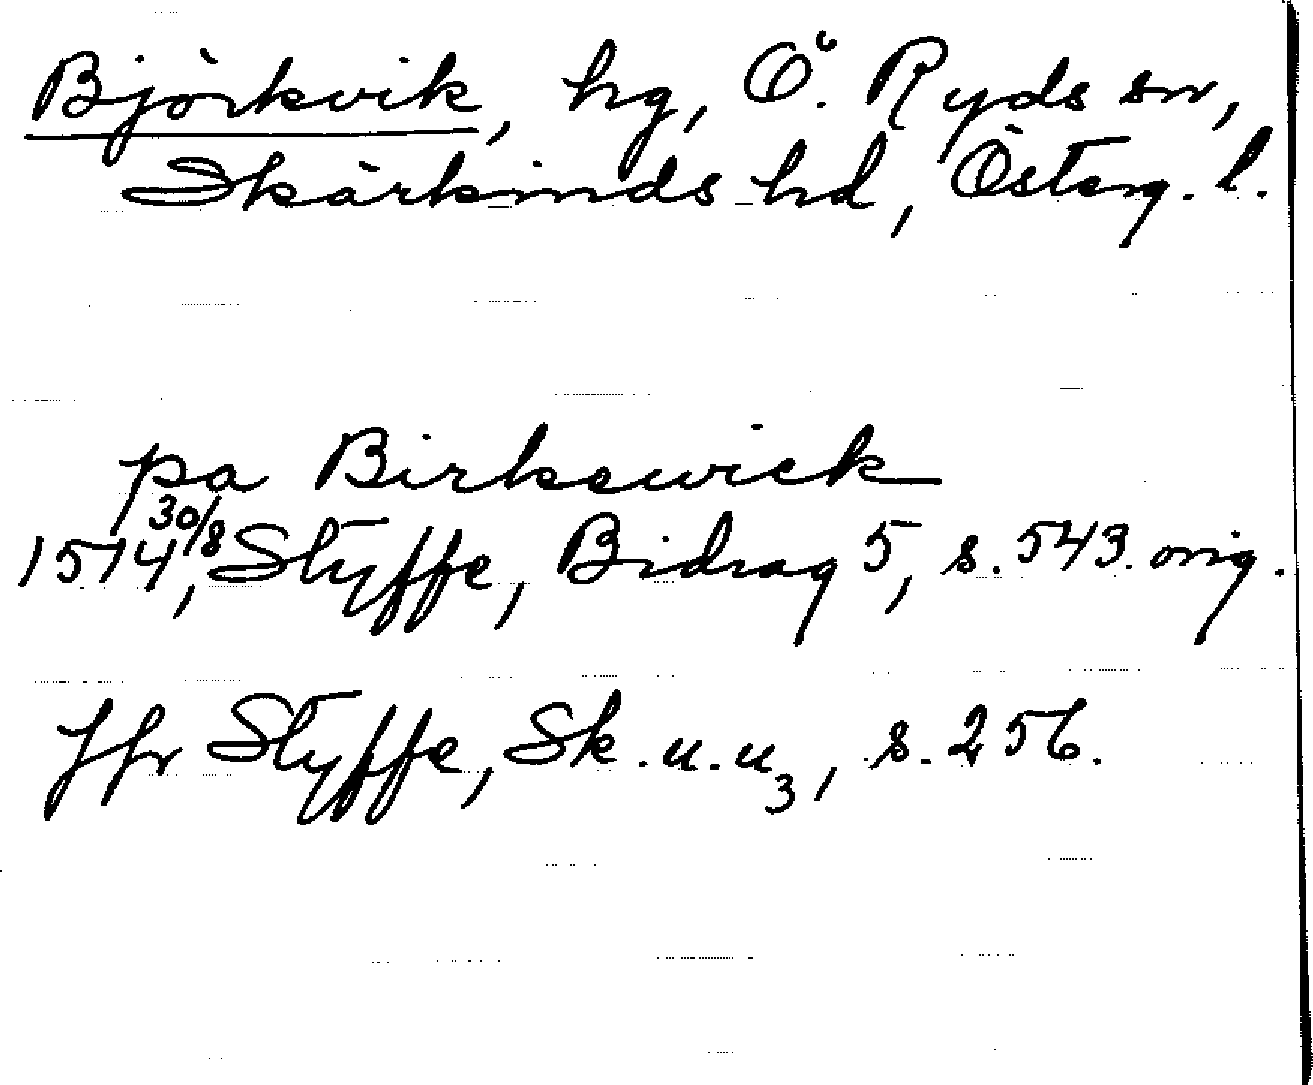 Björkvik, hg, Ö. Ryds sn,
Skärkinds hd, Österg. l.
pa Birkewick
1514 30/8, Styffe, Bidrag 5, s. 543. orig.
Jfr Styffe, Sk. u. u3, s. 256.